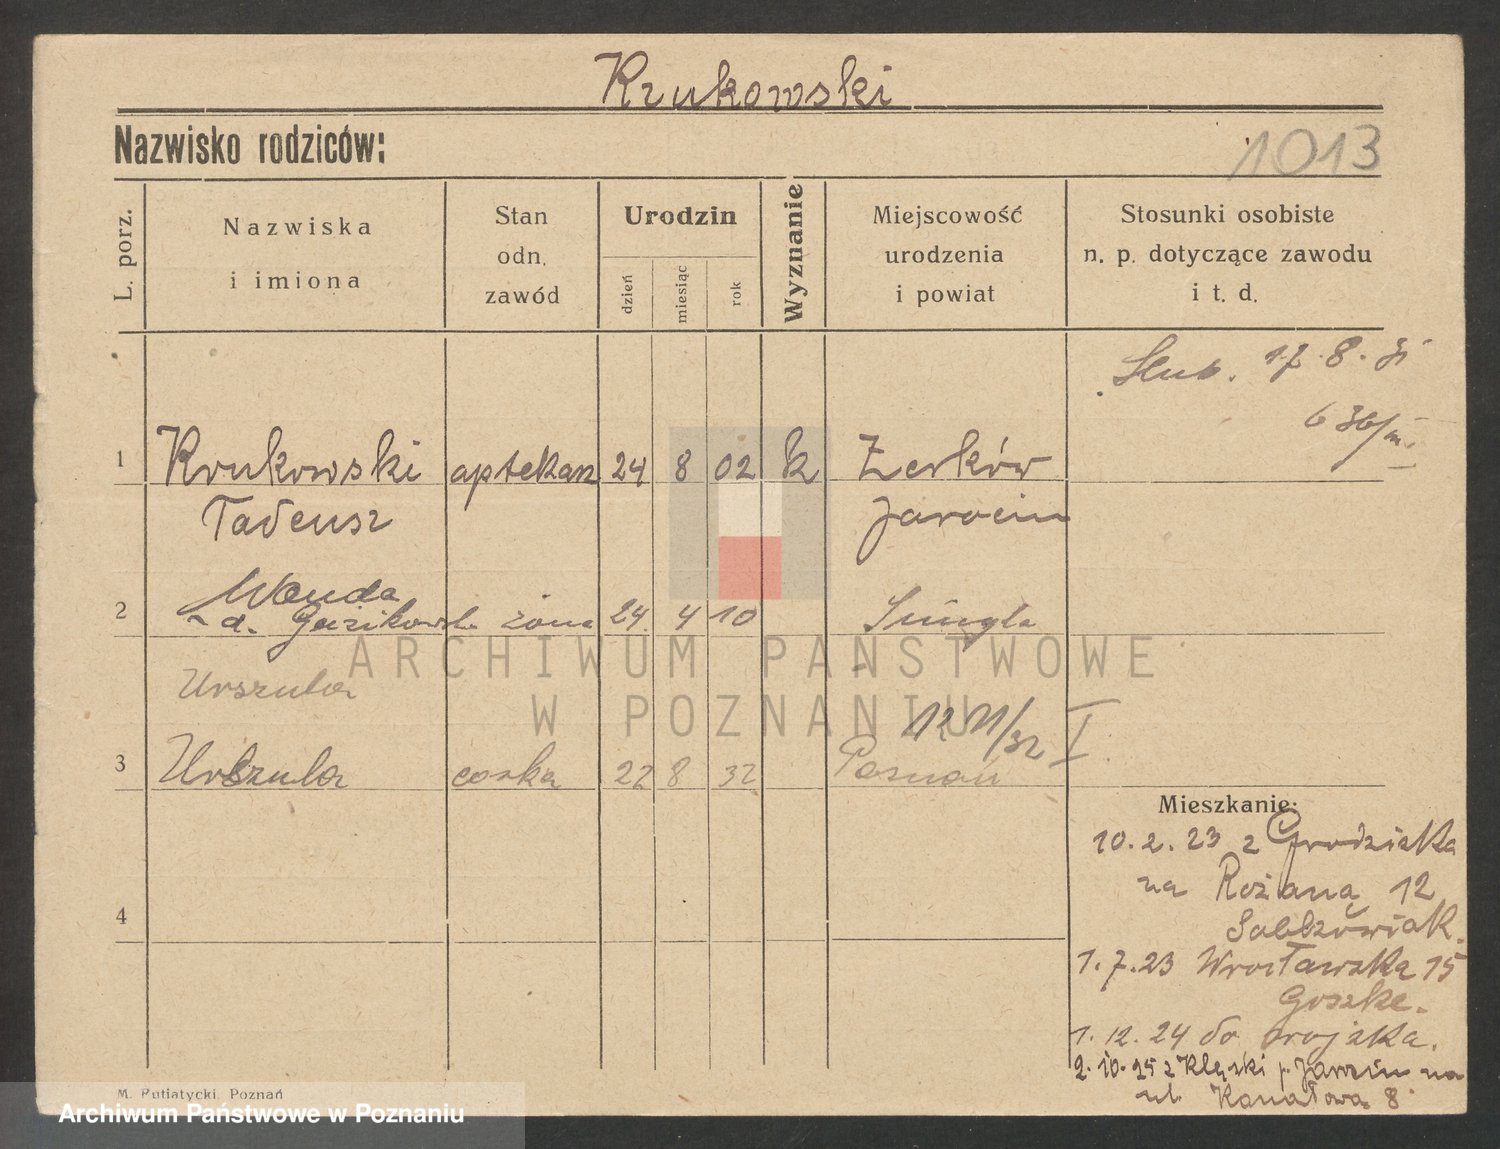 Krukowski
Nazwisko rodziców:
1013
L. porz.
Nazwiska
i imiona
Stan
odn.
zawód
Urodzin
dzień
miesiąc
rok
Wyznanie
Miejscowość
urodzenia
i powiat
Stosunki osobiste
n. p. dotyczące zawodu
i t. d.
Ślub. 17.8.31
636/
1 Krukowski aptekarz 24 8 02 k Żerków
Tadeusz Jarocin
Wanda
2 d. żona 24. 4 10
Urszula
12 11/32 I
3 Urszula corka 22 8 32 Poznań
Mieszkanie:
10. 2. 23 z Grodziska
na Różaną 12
4
1. 7. 23 Wrocławska 15
Goszke.
1. 12. 24 do wojska.
2. 10. 25 z Klęski p. Jarocin na
ul. Kanałową 8
ARCHIWUM PAŃSTWOWE
W POZNANIU
M. Putiatycki, Poznań
Archiwum Państwowe w Poznaniu